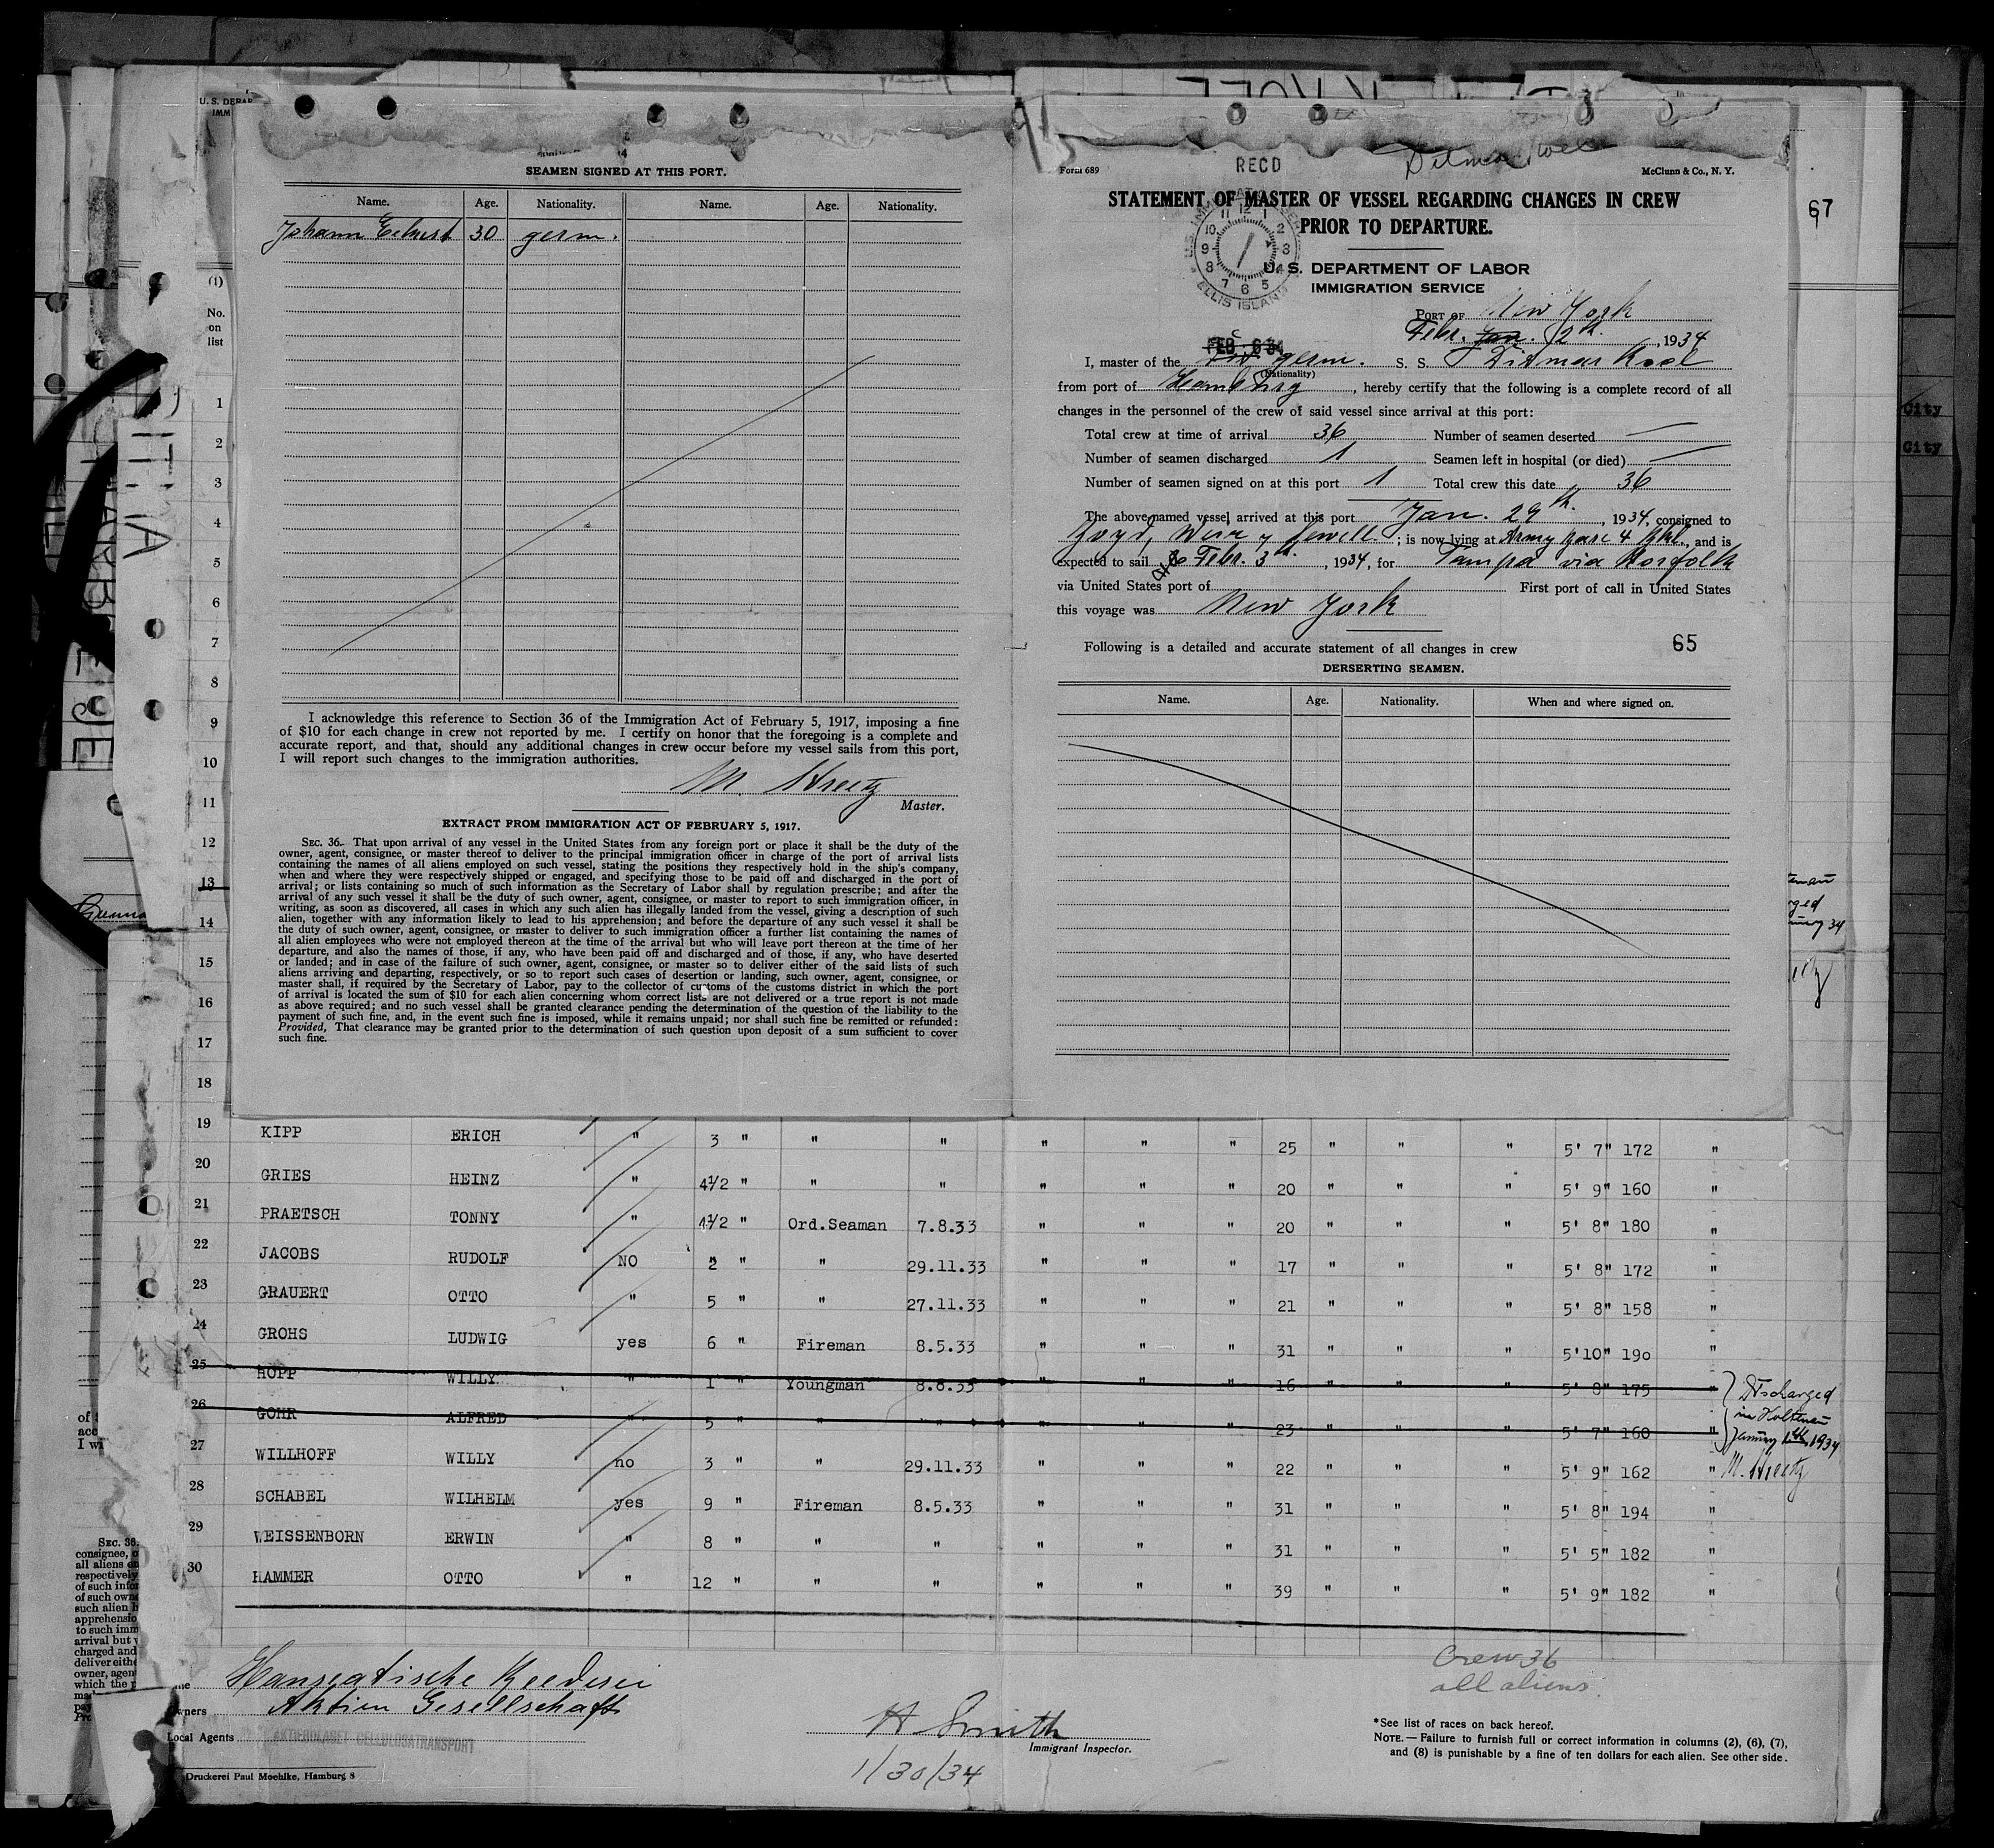 U. S. DEPAR
IMM
(1)
No.
on
list
1
2
3
4
5
6
7
8
9
10
11
12
13
14
15
16
17
18
SEAMEN SIGNED AT THIS PORT.
Name. Age. Nationality. Name. Age. Nationality.
Johann 30 germ.
I acknowledge this reference to Section 36 of the Immigration Act of February 5, 1917, imposing a fine
of $10 for each change in crew not reported by me. I certify on honor that the foregoing is a complete and
accurate report, and that, should any additional changes in crew occur before my vessel sails from this port,
I will report such changes to the immigration authorities.
M. Streetz
Master.
EXTRACT FROM IMMIGRATION ACT OF FEBRUARY 5, 1917.
SEC. 36. That upon arrival of any vessel in the United States from any foreign port or place it shall be the duty of the
owner, agent, consignee, or master thereof to deliver to the principal immigration officer in charge of the port of arrival lists
containing the names of all aliens employed on such vessel, stating the positions they respectively hold in the ship's company,
when and where they were respectively shipped or engaged, and specifying those to be paid off and discharged in the port of
arrival; or lists containing so much of such information as the Secretary of Labor shall by regulation prescribe; and after the
arrival of any such vessel it shall be the duty of such owner, agent, consignee, or master to report to such immigration officer, in
writing, as soon as discovered, all cases in which any such alien has illegally landed from the vessel, giving a description of such
alien, together with any information likely to lead to his apprehension; and before the departure of any such vessel it shall be
the duty of such owner, agent, consignee, or master to deliver to such immigration officer a further list containing the names of
all alien employees who were not employed thereon at the time of the arrival but who will leave port thereon at the time of her
departure, and also the names of those, if any, who have been paid off and discharged and of those, if any, who have deserted
or landed; and in case of the failure of such owner, agent, consignee, or master so to deliver either of the said lists of such
aliens arriving and departing, respectively, or so to report such cases of desertion or landing, such owner, agent, consignee, or
master shall, if required by the Secretary of Labor, pay to the collector of customs of the customs district in which the port
of arrival is located the sum of $10 for each alien concerning whom correct lists are not delivered or a true report is not made
as above required; and no such vessel shall be granted clearance pending the determination of the question of the liability to the
payment of such fine, and, in the event such fine is imposed, while it remains unpaid; nor shall such fine be remitted or refunded:
Provided, That clearance may be granted prior to the determination of such question upon deposit of a sum sufficient to cover
such fine.
RECD
Form 689
McClunn & Co., N. Y.
STATEMENT OF MASTER OF VESSEL REGARDING CHANGES IN CREW
PRIOR TO DEPARTURE.
67
ELLIS ISLAND
U. S. DEPARTMENT OF LABOR
IMMIGRATION SERVICE
PORT OF New York
Febr. Jan. 2th. , 1934
I, master of the germ. S. S. Ditmar Koel
(Nationality)
from port of Hamburg , hereby certify that the following is a complete record of all
changes in the personnel of the crew of said vessel since arrival at this port:
Total crew at time of arrival 36 Number of seamen deserted —
Number of seamen discharged 1 Seamen left in hospital (or died) —
Number of seamen signed on at this port 1 Total crew this date 36
The above-named vessel arrived at this port Jan. 29th. , 1934, consigned to
; is now lying at Army 4 , and is
expected to sail Febr. 3th. , 1934, for Tampa via Norfolk
via United States port of First port of call in United States
this voyage was New York
Following is a detailed and accurate statement of all changes in crew 65
DERSERTING SEAMEN.
Name. Age. Nationality. When and where signed on.
City
City
19 KIPP ERICH " 3 " " " " " " 25 " " " 5' 7" 172 "
20 GRIES HEINZ " 4½ " " " " " " 20 " " " 5' 9" 160 "
21 PRAETSCH TONNY " 4½ " Ord.Seaman 7.8.33 " " " 20 " " " 5' 8" 180 "
22 JACOBS RUDOLF NO 2 " " 29.11.33 " " " 17 " " " 5' 8" 172 "
23 GRAUERT OTTO " 5 " " 27.11.33 " " " 21 " " " 5' 8" 158 "
24 GROHS LUDWIG yes 6 " Fireman 8.5.33 " " " 31 " " " 5'10" 190 "
25 HOPP WILLY " 1 " Youngman 8.8.33 " " " 16 " " " 5' 8" 175 " Discharged
26 GOHR ALFRED " 5 " " " " " " 23 " " " 5' 7" 160 " in Holtenau
January 1934
27 WILLHOFF WILLY no 3 " " 29.11.33 " " " 22 " " " 5' 9" 162 " M. Streetz
28 SCHABEL WILHELM yes 9 " Fireman 8.5.33 " " " 31 " " " 5' 8" 194 "
29 WEISSENBORN ERWIN " 8 " " " " " " 31 " " " 5' 5" 182 "
30 HAMMER OTTO " 12 " " " " " " 39 " " " 5' 9" 182 "
Crew 36
all aliens.
Hanseatische Reederei
Owners Aktien Gesellschaft
Local Agents AKTIEBOLAGET CELLULOSATRANSPORT
H Smith
Immigrant Inspector.
1/30/34
*See list of races on back hereof.
NOTE.—Failure to furnish full or correct information in columns (2), (6), (7),
and (8) is punishable by a fine of ten dollars for each alien. See other side.
Druckerei Paul Moehlke, Hamburg 8